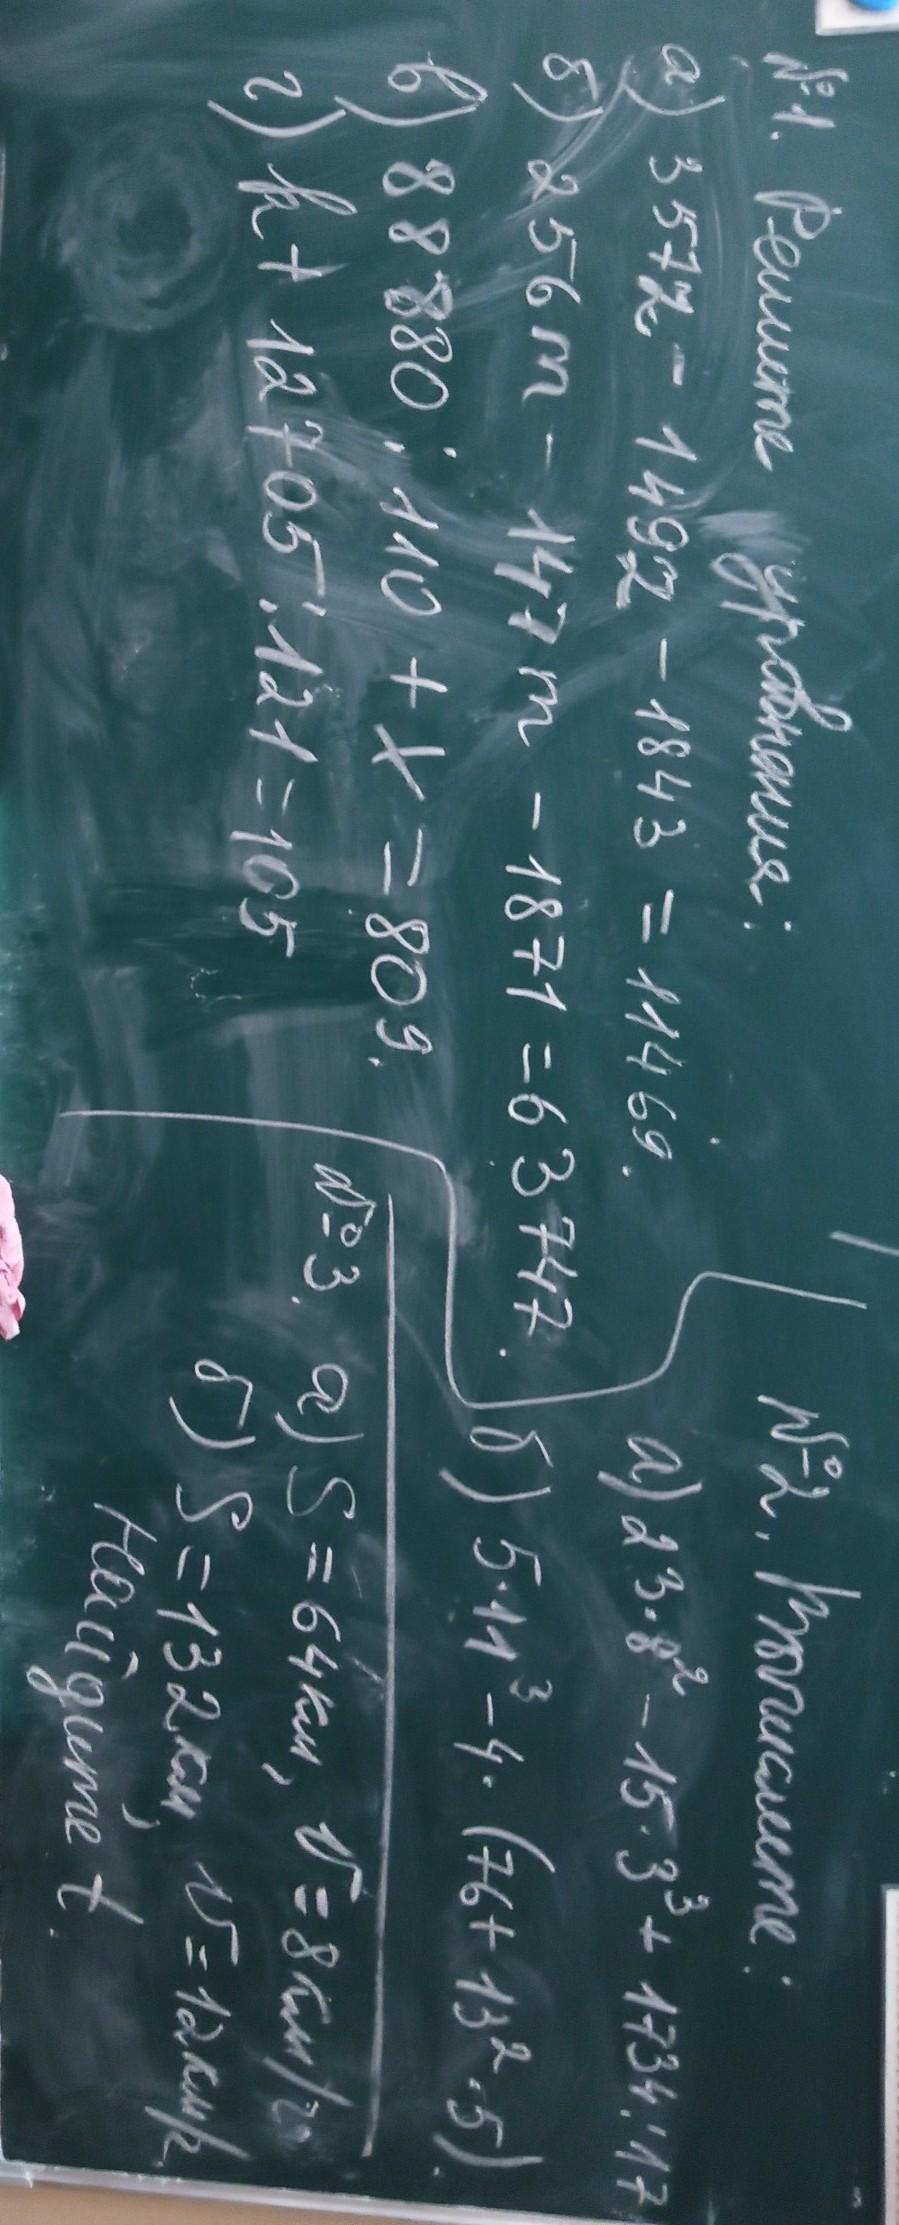 №1. Решите уравнения:
а) 357z - 149z - 1843 = 11469.
б) 256m - 147m - 1871 = 63747.
в) 88880 : 110 + x = 809.
г) k + 12705 : 121 = 105
№2. Вычислите:
а) 23·8² - 15·3³ + 1734:17
б) 5·11³ - 4·(76 + 13²·5).
№3. а) S = 64км, v = 8км/ч
б) S = 132км, v = 12км/ч.
Найдите t.